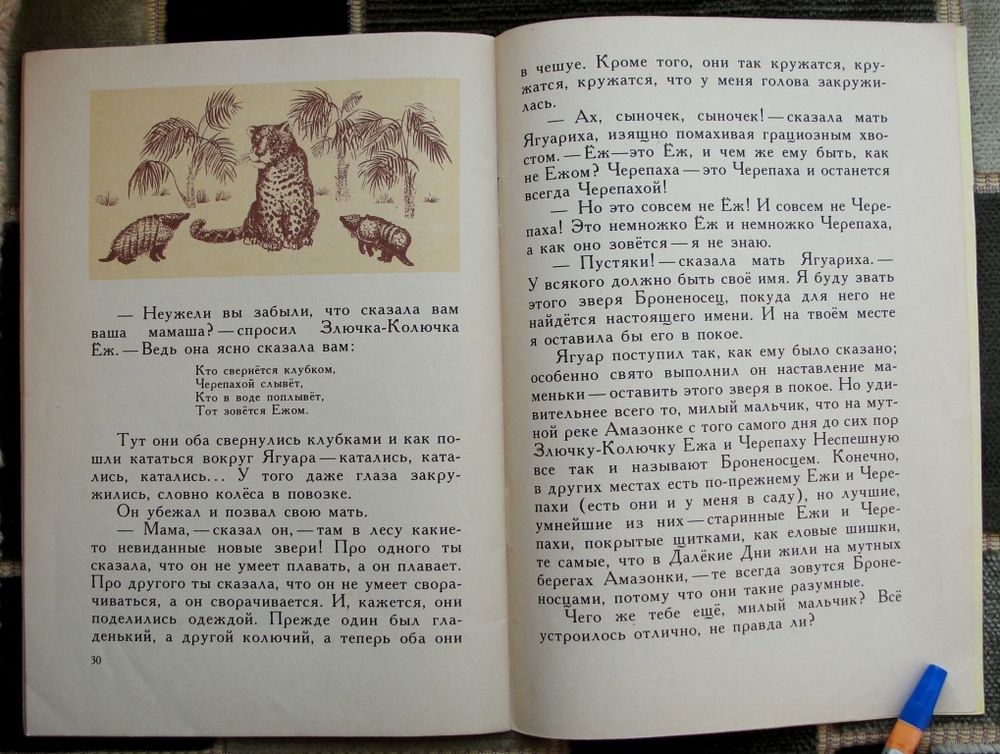 — Неужели вы забыли, что сказала вам
ваша мамаша? — спросил Злючка-Колючка
Ёж. — Ведь она ясно сказала вам:
Кто свернётся клубком,
Черепахой слывёт,
Кто в воде поплывёт,
Тот зовётся Ежом.
Тут они оба свернулись клубками и как по-
шли кататься вокруг Ягуара — катались, ката-
лись, катались... У того даже глаза закру-
жились, словно колёса в повозке.
Он убежал и позвал свою мать.
— Мама, — сказал он, — там в лесу какие-
то невиданные новые звери! Про одного ты
сказала, что он не умеет плавать, а он плавает.
Про другого ты сказала, что он не умеет свора-
чиваться, а он сворачивается. И, кажется, они
поделились одеждой. Прежде один был гла-
денький, а другой колючий, а теперь оба они
30
в чешуе. Кроме того, они так кружатся, кру-
жатся, кружатся, что у меня голова закружи-
лась.
— Ах, сыночек, сыночек! — сказала мать
Ягуариха, изящно помахивая грациозным хво-
стом. — Ёж — это Ёж, и чем же ему быть, как
не Ежом? Черепаха — это Черепаха и останется
всегда Черепахой!
— Но это совсем не Ёж! И совсем не Чере-
паха! Это немножко Ёж и немножко Черепаха,
а как оно зовётся — я не знаю.
— Пустяки! — сказала мать Ягуариха. —
У всякого должно быть своё имя. Я буду звать
этого зверя Броненосец, покуда для него не
найдётся настоящего имени. И на твоём месте
я оставила бы его в покое.
Ягуар поступил так, как ему было сказано;
особенно свято выполнил он наставление ма-
меньки — оставить этого зверя в покое. Но уди-
вительнее всего то, милый мальчик, что на мут-
ной реке Амазонке с того самого дня до сих пор
Злючку-Колючку Ежа и Черепаху Неспешную
все так и называют Броненосцем. Конечно,
в других местах есть по-прежнему Ежи и Чере-
пахи (есть они и у меня в саду), но лучшие,
умнейшие из них — старинные Ежи и Чере-
пахи, покрытые щитками, как еловые шишки,
те самые, что в Далёкие Дни жили на мутных
берегах Амазонки, — те всегда зовутся Броне-
носцами, потому что они такие разумные.
Чего же тебе ещё, милый мальчик? Всё
устроилось отлично, не правда ли?